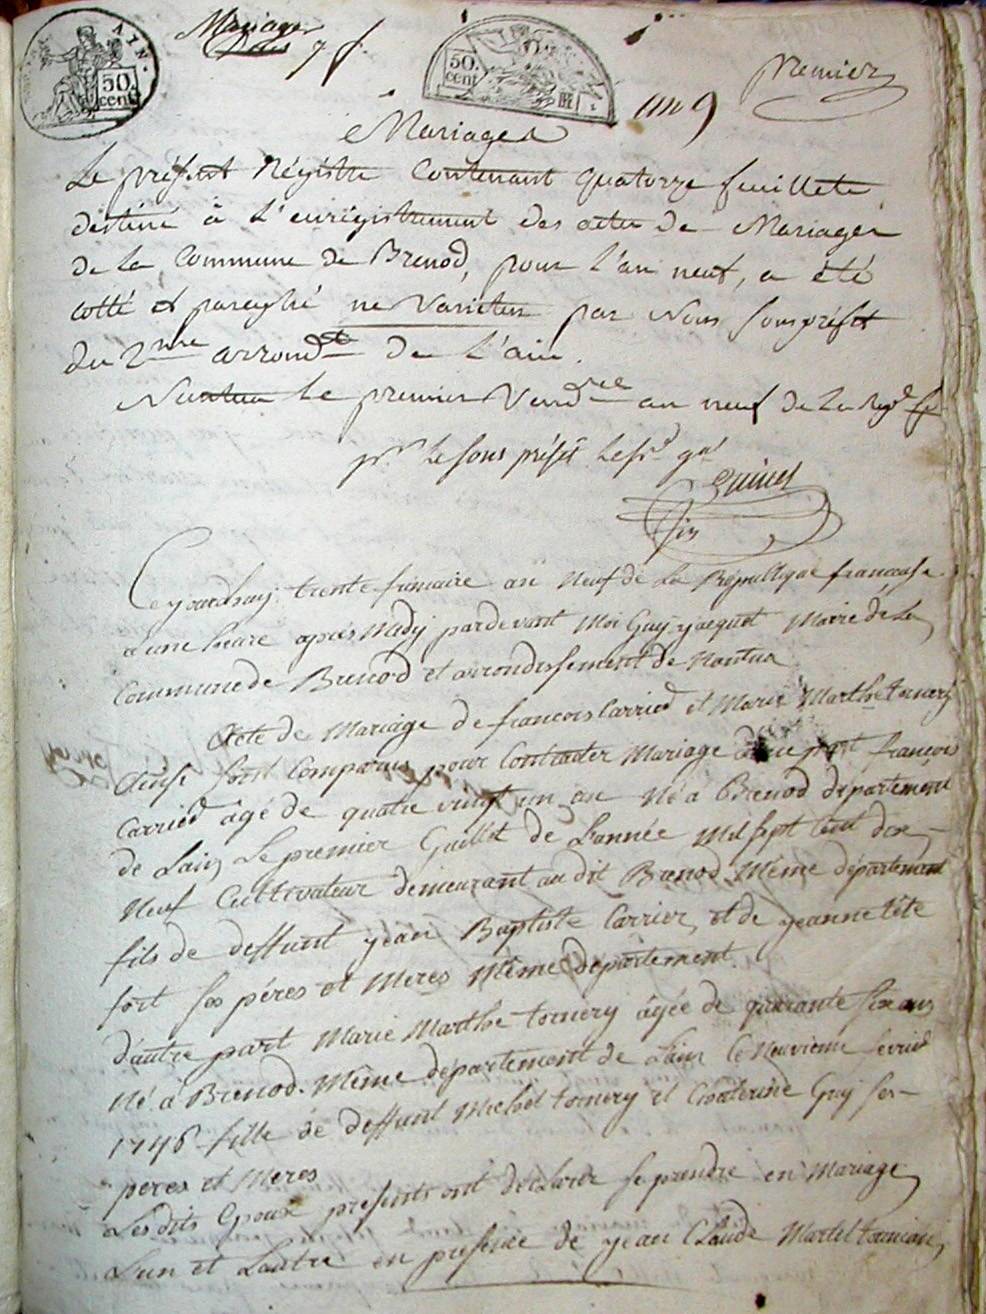 AIN.
50.
cent
Mariages
50.
cent
an 9
premier
Mariages
Le présent Régistre Contenant quatorze feuillets
destiné à l'enrégistrement des actes de Mariages
de la Commune de Brenod, pour l'an neuf, a été
cotté et paraphé ne Varietur par Nous souspréfet
du 2me arrondst de l'ain.
Nantua Le premier Vendre an neuf de la Repe fse
pr le sous préfet le sre gal
Ceyourdhuy trente frimaire an Neuf de La République francaise
a une heure après Midy pardevant Moi Guy yacquet Maire de La
Commune de Brenod et arrondissement de Nantua
Acte de Mariage de francois Carrier et Marie Marthe tornery
Ainsi sont Comparus pour Contracter Mariage d'une part françois
Carrier âgé de quatre vingt un an Né a Brenod département
de Lain Le premier Guillet de L'année Mil sept Cent dix
Neuf Cultivateur demeurant au dit Brenod Même département
fils de deffunt yean Baptiste Carrier et de yeanne tête
fort ses péres et Meres Même département.
d'autre part Marie Marthe tornery âgée de quarante six ans
Né a Brenod. Même département de Lain Le Neuvieme fevrier
1746 fille de deffunt Michel tornery et Chaterine Guy ses
peres et Meres
Les dits Epoux presents ont déclarer se prendre en Mariage
L'un et Lautre en presence de yean Claude Martel